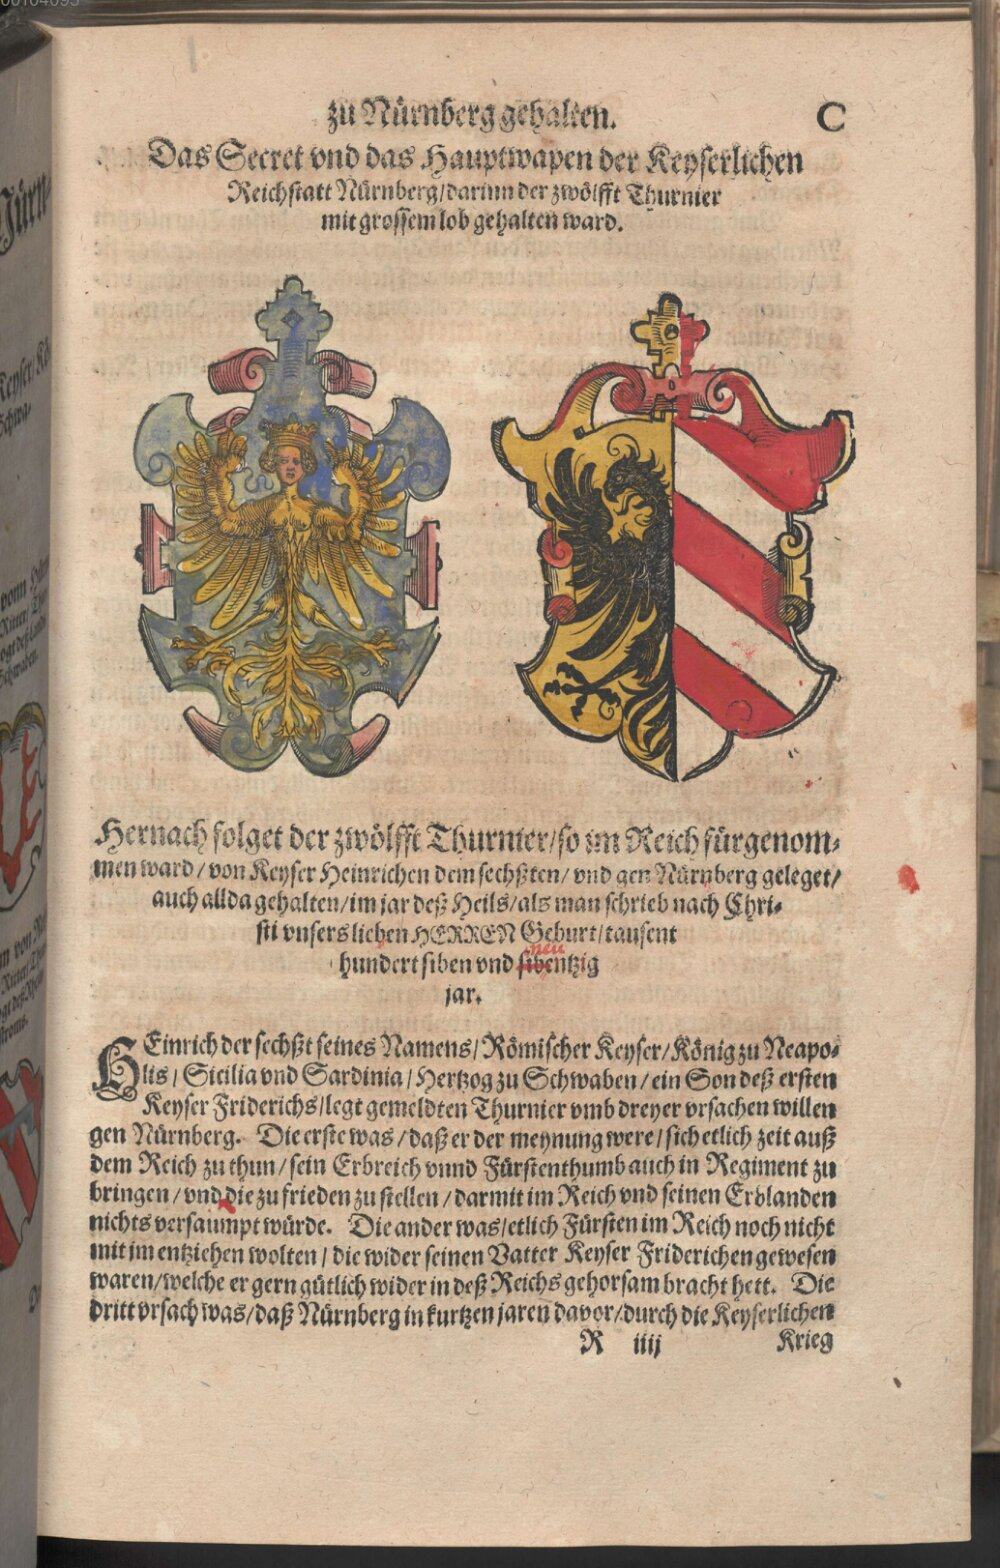 zu Nürnberg gehalten. C
Das Secret vnd das Hauptwapen der Keyserlichen
Reichstatt Nürnberg/darinn der zwölfft Thurnier
mit grossem lob gehalten ward.
Hernach folget der zwölfft Thurnier/so im Reich fürgenom-
men ward/von Keyser Heinrichen dem sechßten/vnd gen Nürnberg geleget/
auch allda gehalten/im jar deß Heils/als man schrieb nach Chri-
sti vnsers lieben HERREN Geburt/tausent
neu
hundert siben vnd sibentzig
jar.
HEinrich der sechßt seines Namens/Römischer Keyser/König zu Neapo-
lis/Sicilia vnd Sardinia/Hertzog zu Schwaben/ein Son deß ersten
Keyser Friderichs/legt gemeldten Thurnier vmb dreyer vrsachen willen
gen Nürnberg. Die erste was/daß er der meynung were/sich etlich zeit auß
dem Reich zu thun/sein Erbreich vnnd Fürstenthumb auch in Regiment zu
bringen/vnd die zu frieden zu stellen/darmit im Reich vnd seinen Erblanden
nichts versaumpt würde. Die ander was/etlich Fürsten im Reich noch nicht
mit im entziehen wolten/die wider seinen Vatter Keyser Friderichen gewesen
waren/welche er gern gütlich wider in deß Reichs gehorsam bracht hett. Die
dritt vrsach was/daß Nürnberg in kurtzen jaren davor/durch die Keyserlichen
R iiij Krieg